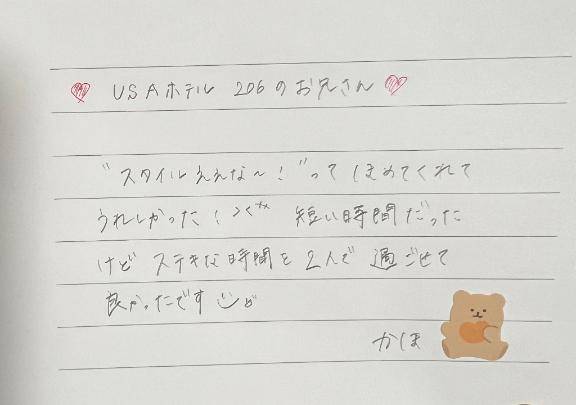 ♡ USAホテル 206のお兄さん ♡
"スタイルええな〜！"ってほめてくれて
うれしかった！>< 短い時間だった
けど ステキな時間を 2人で 過ごせて
良かったです
かほ